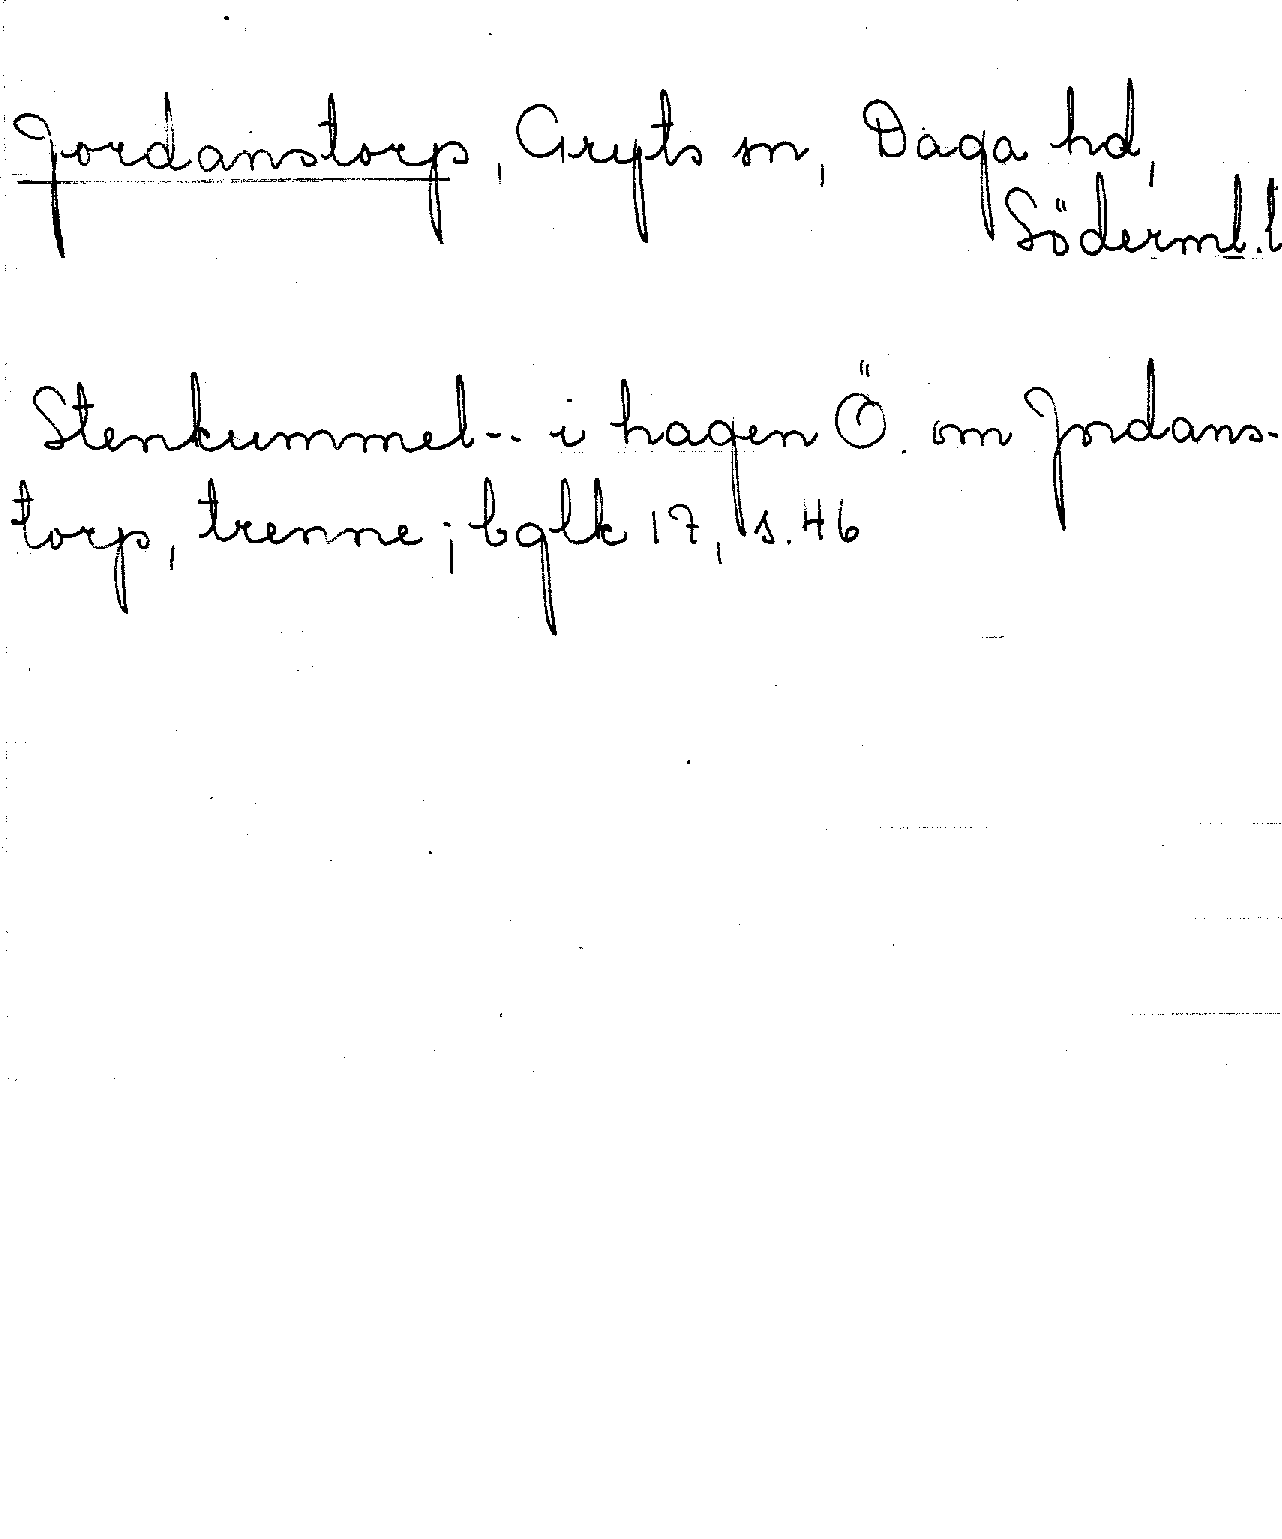 Jordanstorp, Gryts sn, Daga hd,
Söderml.l
Stenkummel-- i hagen Ö. om Jordans-
torp, trenne; bglk 17, s. 46